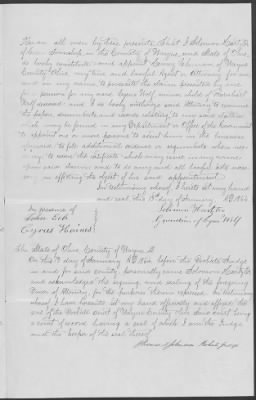 Know all men by these presents that I Solomon Hartzler
of Green Township in the County of Wayne and State of Ohio,
do hereby constitute and appoint Harvey Johnson of Wayne
County Ohio my true and lawful Agent or Attorney for me
and in my name, to prosecute the claim presented by me
for a pension for my ward Cyrus Wolf minor child of
Wolf deceased and I do hereby authorize said Attorney to examine
the papers, documents and records relating to my said application
which may be found in any Department or Office of the Government
to appoint one or more persons to assist him in the business
aforesaid, to file additional evidence or arguments when necessary
to receive the certificate which may issue in my
upon said claim and to do any and all lawful acts necessary
in effecting the object of his said appointment.
In testimony whereof I hereto set my hand
and seal this day of January AD 1866
In presence of
John Zook
Cyrus Haines
Solomon Hartzler
Guardian of Cyrus Wolf
The State of Ohio County of Wayne SS
On this day of January AD 1866 before the Probate Judge
in and for said county, personally came Solomon Hartzler
and acknowledged the signing and sealing of the foregoing
Power of Attorney, for the purposes therein expressed. In testimony
whereof I have hereunto set my hand officially and affixed the
seal of the Probate court of Wayne County Ohio said court being
a court of record having a seal of which I am the Judge
and the keeper of the seal thereof
Probate Judge